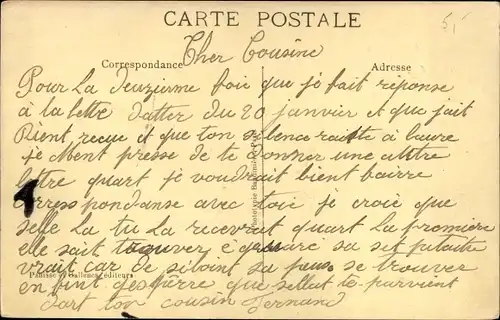 CARTE POSTALE
5,-
Correspondance
Adresse
Cher Cousine
Pour La deuzieme foie que je fait réponse
à la lettre datter du 20 janvier et que jait
Rient recue et que ton silence raiste à
je Ment presse de te donner une autre
lettre quart je voudrait bient
corresspondanse avec toie je croie que
selle La tu La recevrat quart La première
elle sait trouver é sa set
vrait car de sa peus se trouver
en fint j'espérre que sellat te parvient
dart ton cousin Fernand
éditeurs